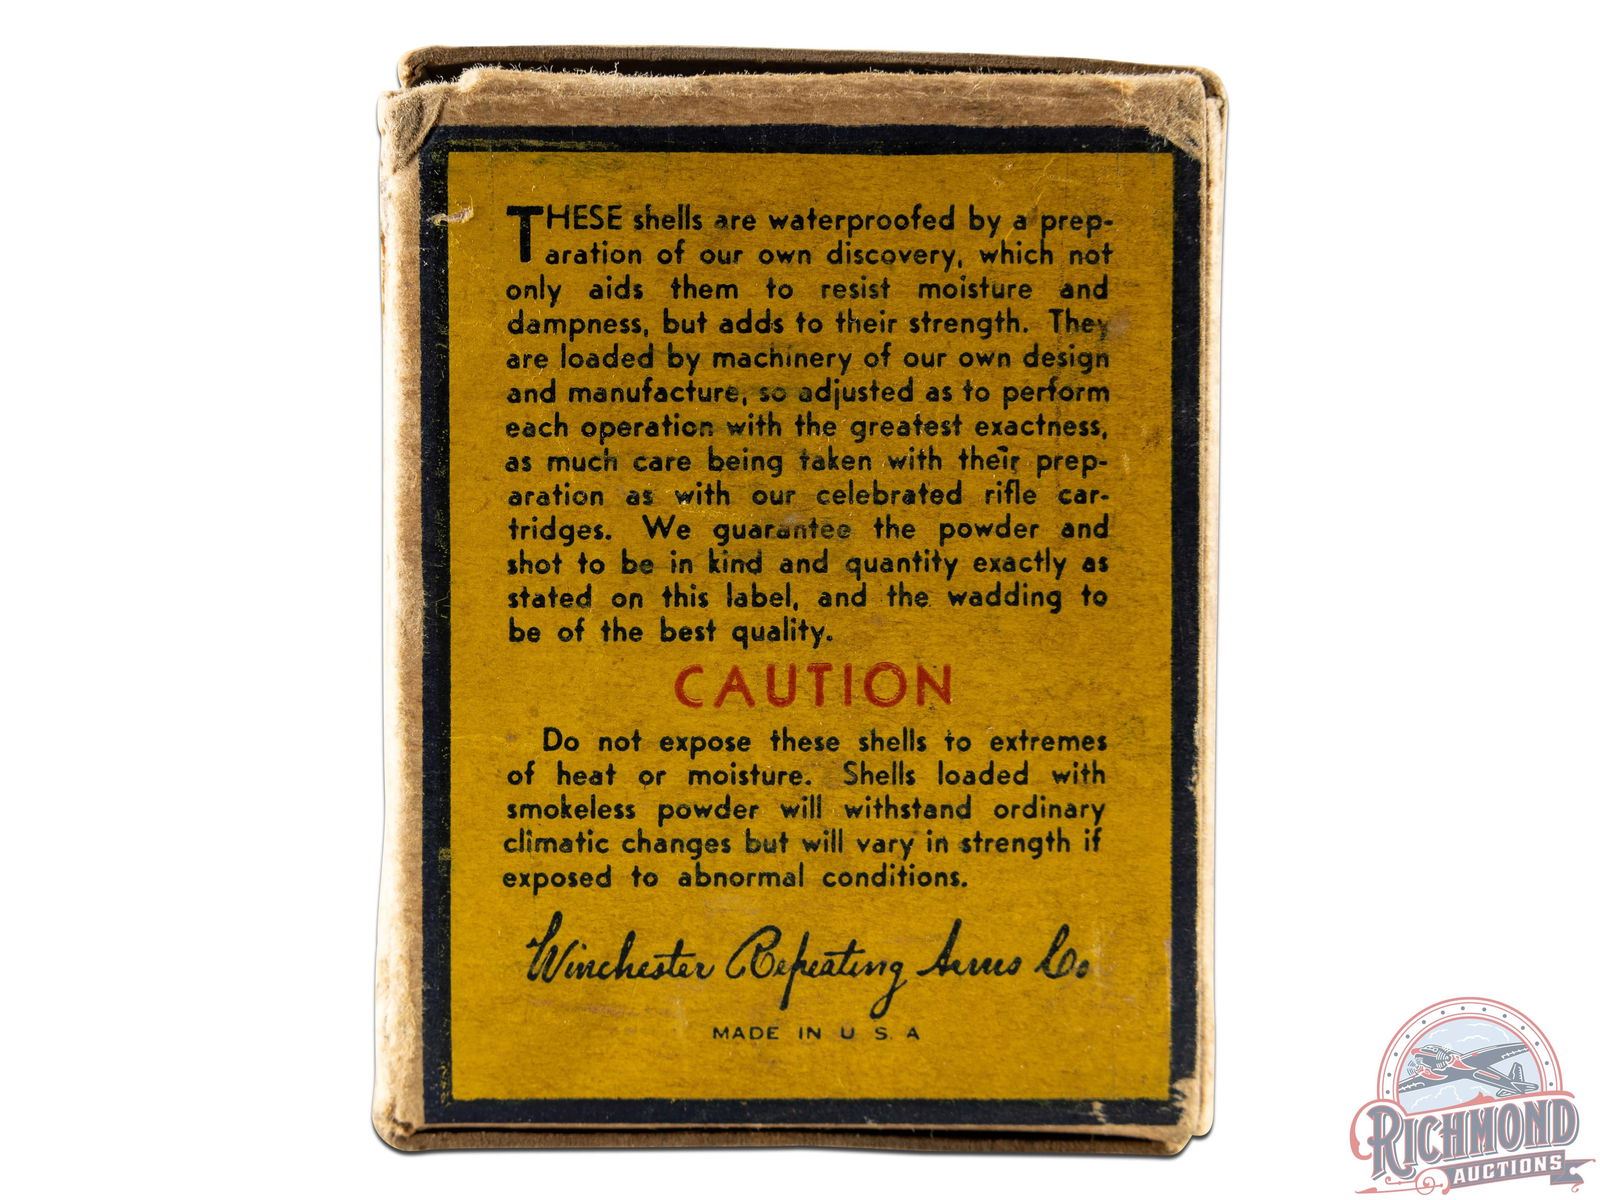 THESE shells are waterproofed by a prep-
aration of our own discovery, which not
only aids them to resist moisture and
dampness, but adds to their strength. They
are loaded by machinery of our own design
and manufacture, so adjusted as to perform
each operation with the greatest exactness,
as much care being taken with their prep-
aration as with our celebrated rifle car-
tridges. We guarantee the powder and
shot to be in kind and quantity exactly as
stated on this label, and the wadding to
be of the best quality.
CAUTION
Do not expose these shells to extremes
of heat or moisture. Shells loaded with
smokeless powder will withstand ordinary
climatic changes but will vary in strength if
exposed to abnormal conditions.
Winchester Repeating Arms Co
MADE IN U S. A
RICHMOND
AUCTIONS